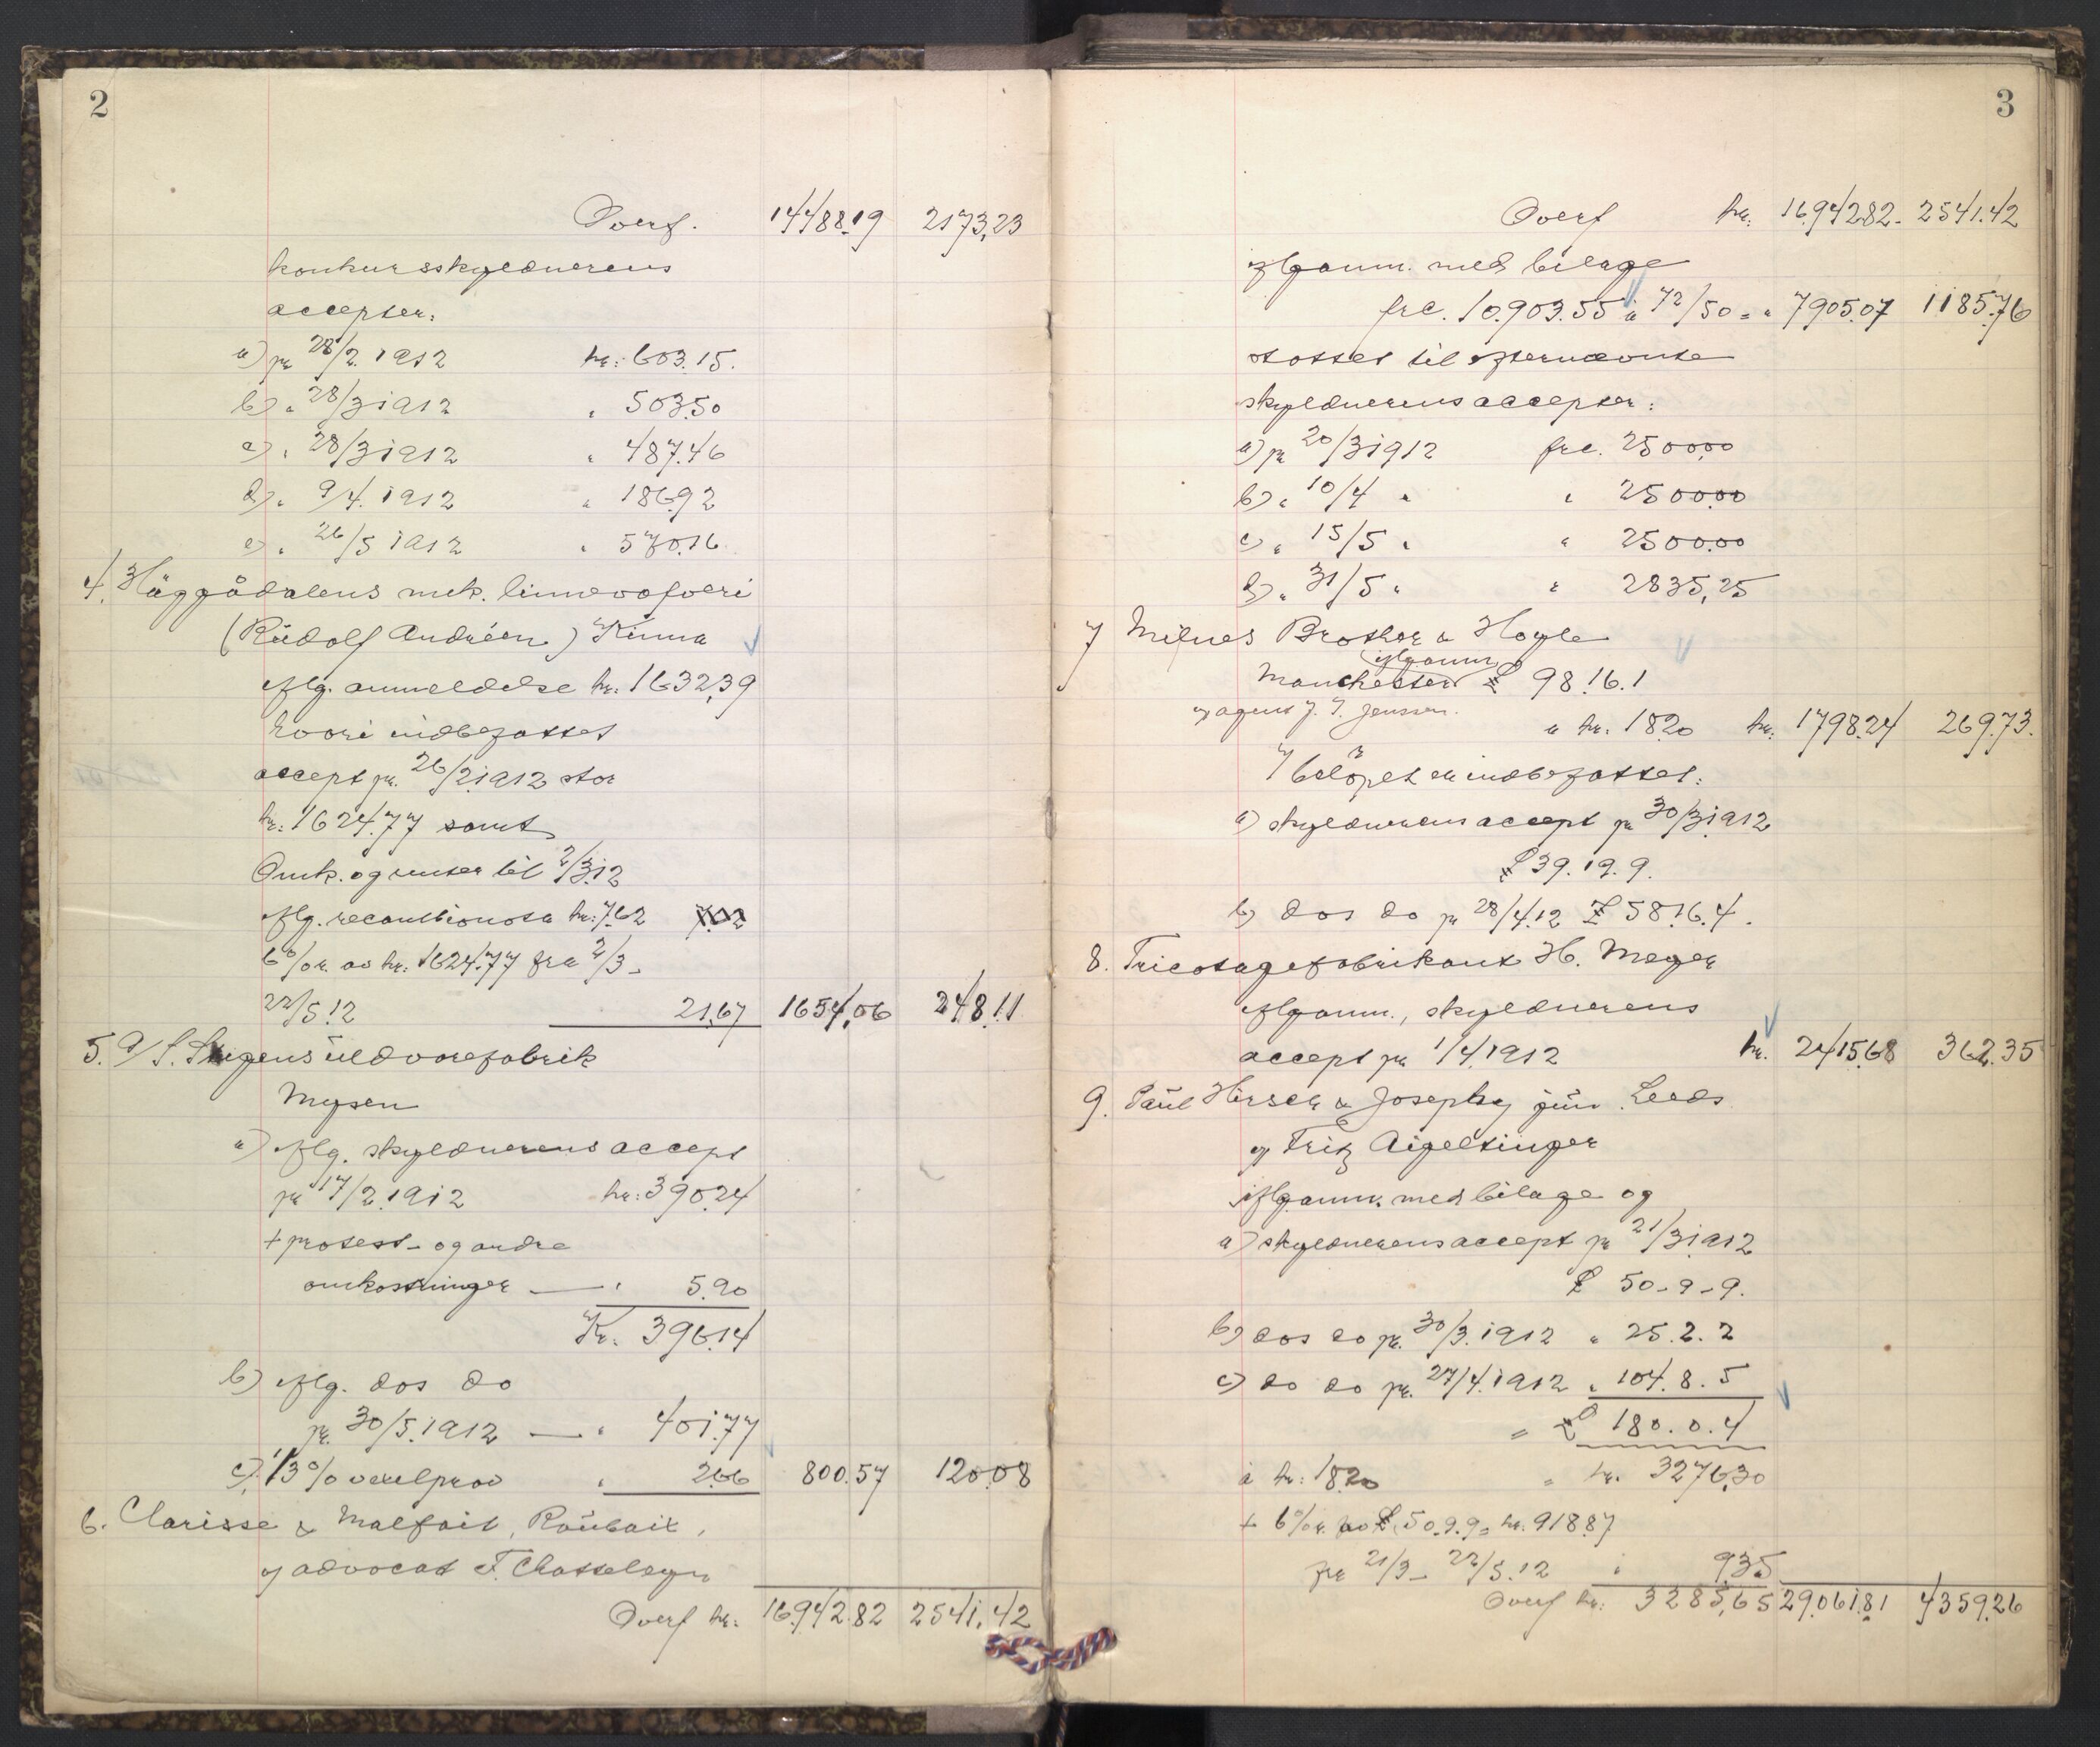 2
Overf. 14488.19 2173,23
konkursskyldnerens
accepter:
a) pr 28/2. 1912 kr: 603.15.
b) " 28/3 1912 " 503.50
c) " 28/3 1912 " 487.46
d) " 9/4. 1912 " 186.92
e) " 26/5 1912 " 570.16
4. Häggådalens mek. linnevofveri
(Rudolf Andréen) Kinna
iflg. anmeldelse kr. 1632,39
hvori indbefattet
accept pr. 26/2 1912 stor
kr: 1624.77 samt
Omk. og renter til 2/3 12
iflg. recambionota kr: 7.62
6% r. av kr: 1624.77 fra 2/3 -
22/5.12 21,67 1654,06 248.11
5. A/S. Skigens uldvarefabrik
Mysen
a) iflg. skyldnerens accept
pr 17/2.1912 kr: 390.24
+ protest- og andre
omkostninger — " 5.90
Kr. 396.14
b) iflg. dos do
pr. 30/5.1912 — " 401.77
c) 1/3% vexelprov " 2.66 800.57 120.08
6. Clarisse & Malfait, Roubaix,
v/ advocat F. Chatteleyn
Overf kr. 16.942.82 2541.42
3
Overf kr. 16.942.82. 2541.42
iflg anm. med bilage
frc. 10.903.55 à 72/50 = " 7905.07 1185.76
støttet til efternævnte
skyldnerens accepter:
a) pr 20/3 1912 frc. 2500.00
b) " 10/4 " " 2500.00
c) " 15/5 " " 2500.00
d) " 31/5 " " 2835,25
7 Milnes Brother & Hoyle
iflg anm
Manchester £ 98.16.1
v/ agent J. T. Jenssen.
à kr. 18.20 kr. 1798.24 269.73.
I beløpet er indbefattet:
a) skyldnerens accept pr 30/3 1912
£ 39.19.9.
b) dos do pr 28/4.12 £ 58.16.4.
8. Tricotagefabrikant H. Meyer
iflg anm., skyldnerens
accept pr 1/4 1912 kr. 2415.68 362.35
9. Paul Hirsch & Josephy jun. Leeds
v/ Fritz Aigeltinger
iflg anm. med bilage og
a) skyldnerens accept pr 21/3 1912
£ 50-9-9.
b) dos do pr. 30/3. 1912 " 25.2.2
c) do do pr. 27/4. 1912 " 104.8.5
= £ 180.0.4
à kr: 18.20 = kr. 3276,30
+ 6% r. av £ 50.9.9 = kr. 918.87
fra 21/3 - 22/5.12 " 9.35
Overf kr. 3285,65 29.061.81 4359.26